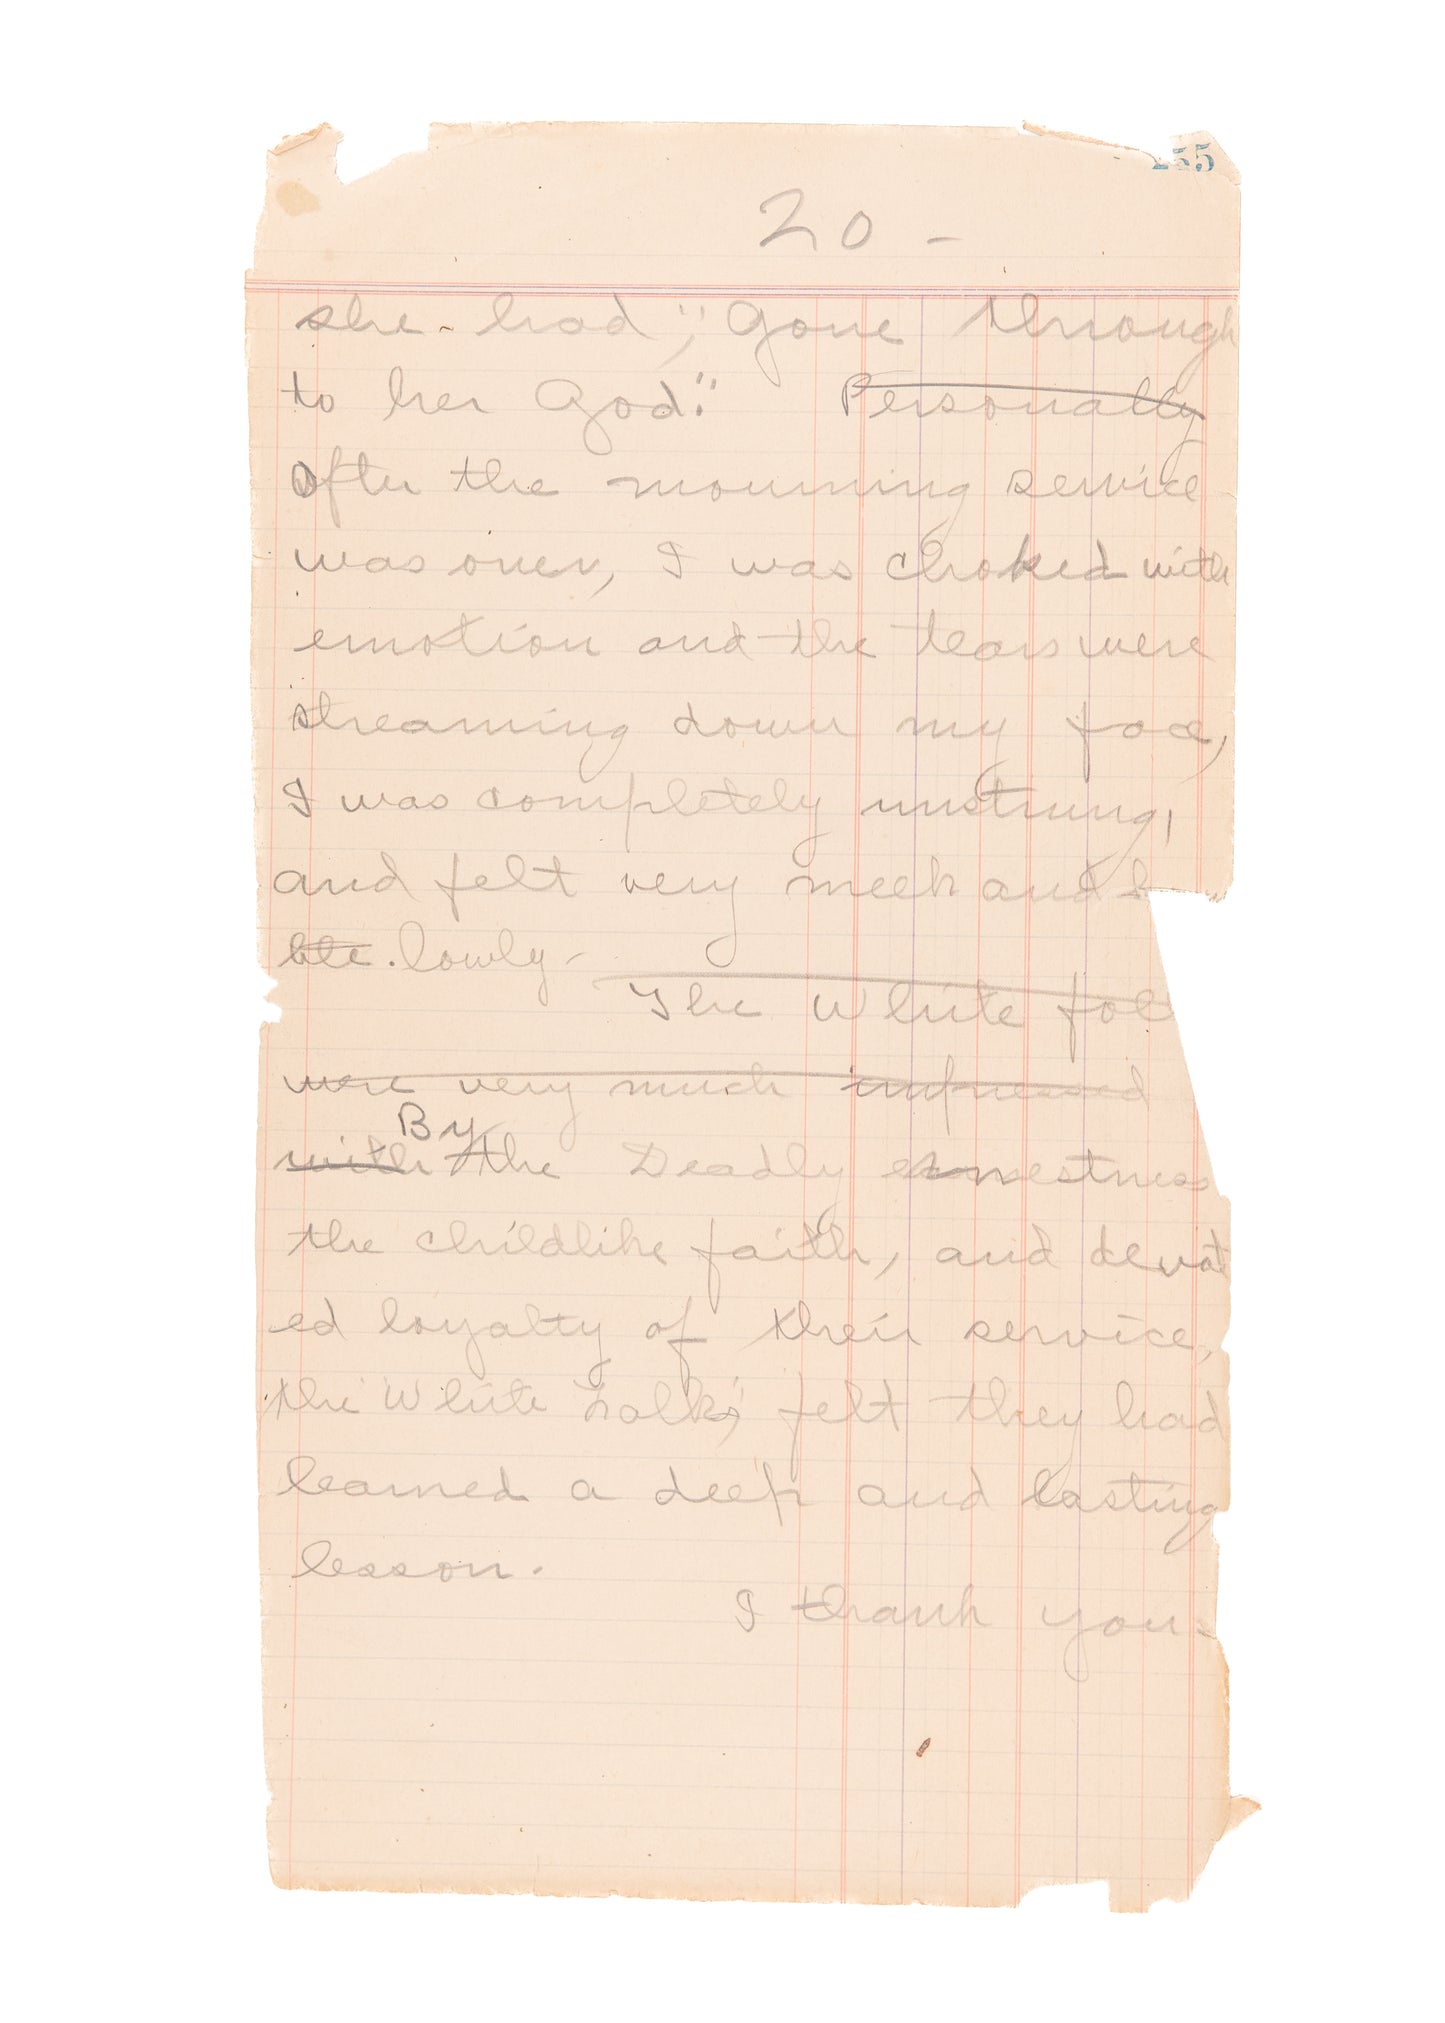 55
20 -
she had, "Gone through
to her God." Personally
after the mourning service
was over, I was choked with
emotion and the tears were
streaming down my face,
I was completely unstrung,
and felt very meek and
lowly -
The White fol
were very much impressed
By
with the Deadly earnestness
the childlike faith, and devot
ed loyalty of their service,
the White Folks, felt they had
learned a deep and lasting
lesson.
I thank you.